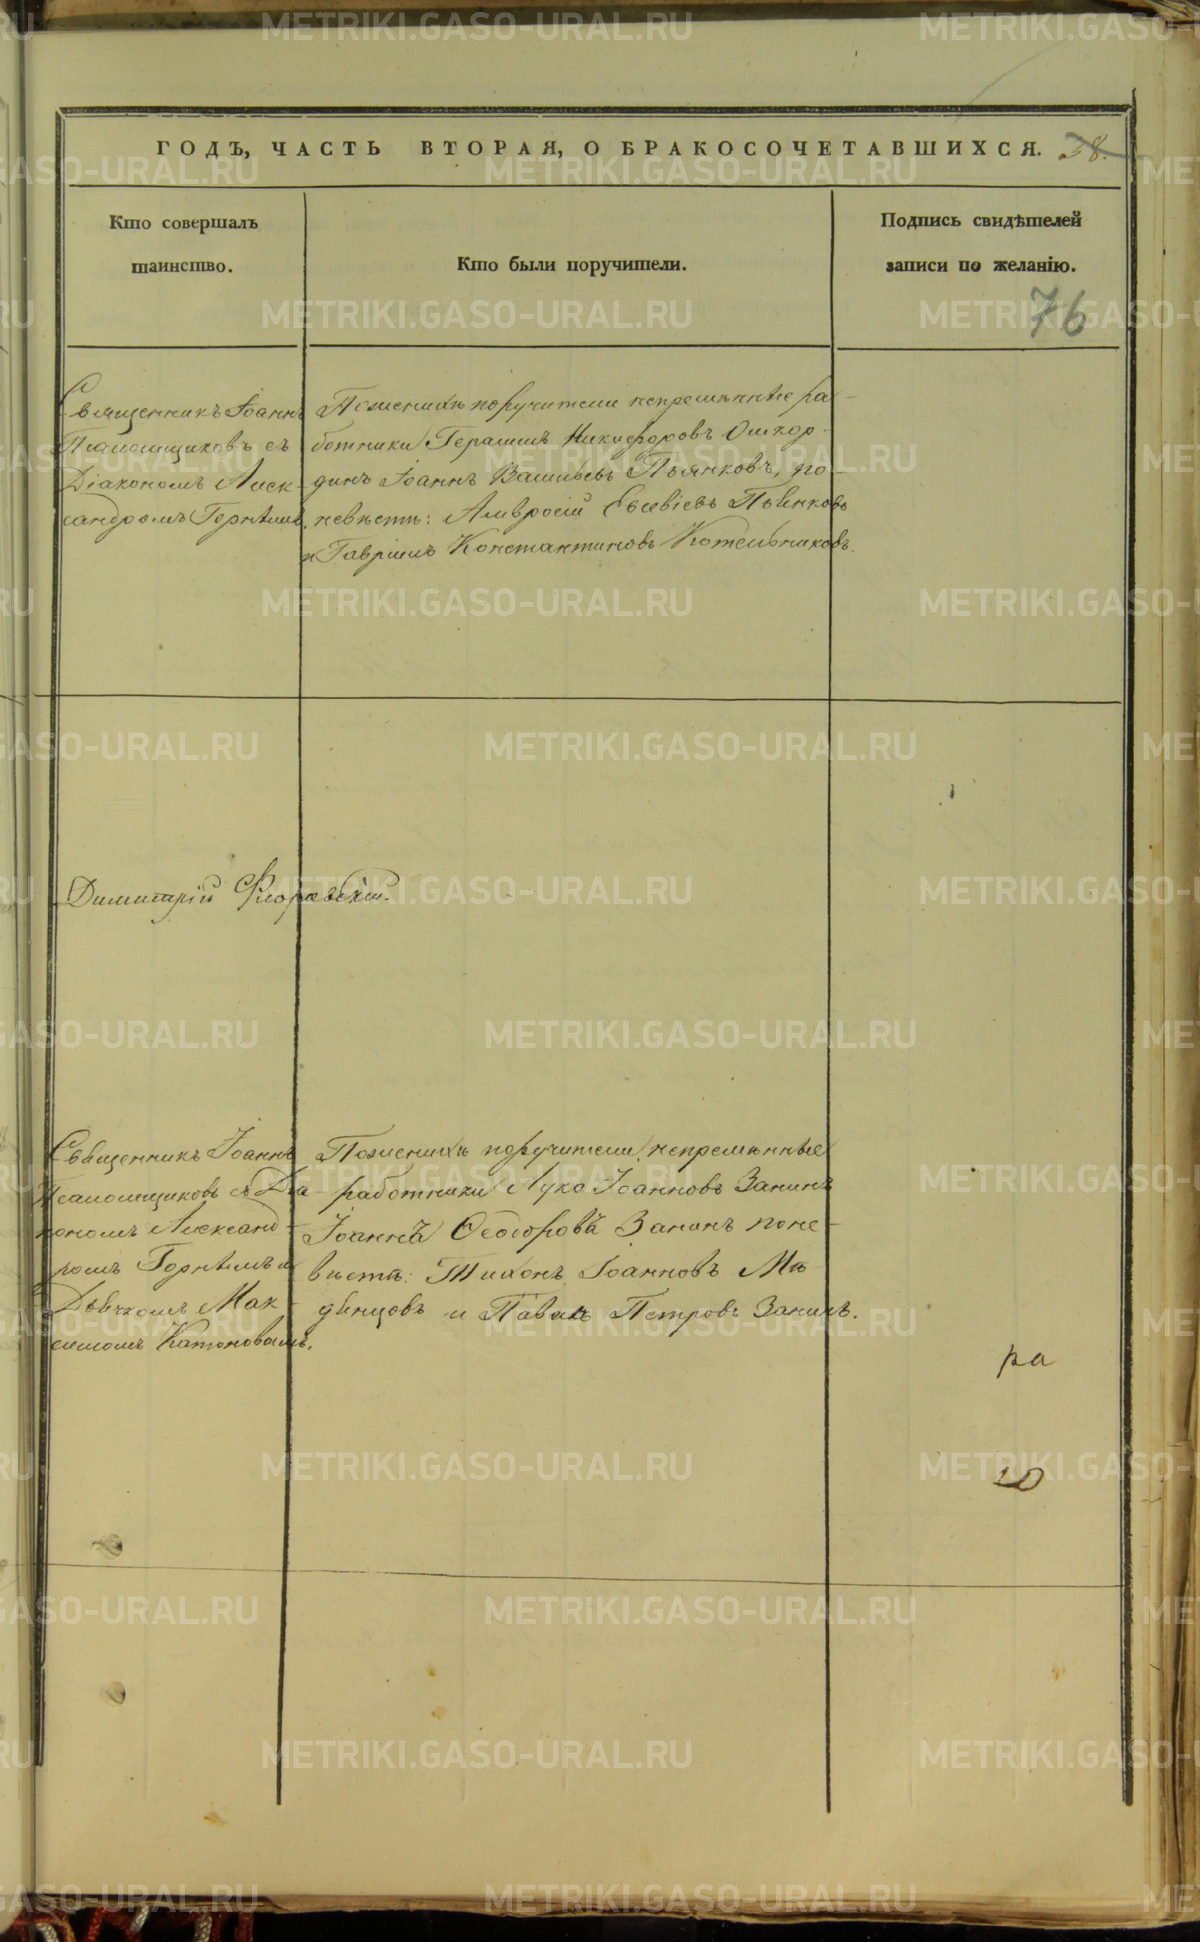 ГОДЪ, ЧАСТЬ ВТОРАЯ, О БРАКОСОЧЕТАВШИХСЯ. 38.
Кто совершалъ
таинство.
Кто были поручители.
Подпись свидѣтелей
записи по желанію.
76
Священникъ Іоаннъ
Псаломщиковъ съ
Діакономъ Алек-
сандромъ Горныхъ
По женихѣ поручители непремѣнные ра-
ботники Герасимъ Никифоровъ
Іоаннъ Васильевъ Пьянковъ, по
невѣстѣ: Амвросій Евсевіевъ Пьянковъ
и Гавріилъ Константиновъ Котельниковъ.
Димитрій Флоровскій.
Священникъ Іоаннъ
Псаломщиковъ съ Діа-
кономъ Александ-
ромъ и
Дьячкомъ Мак-
симомъ
По женихѣ поручители непремѣнные
работники Лука Іоанновъ Занинъ
Іоаннъ Ѳеодоровъ Занинъ по не-
вѣстѣ: Тихонъ Іоанновъ Мѣ-
дѣнцовъ и Павелъ Петровъ Занинъ.
ра
METRIKI.GASO-URAL.RU